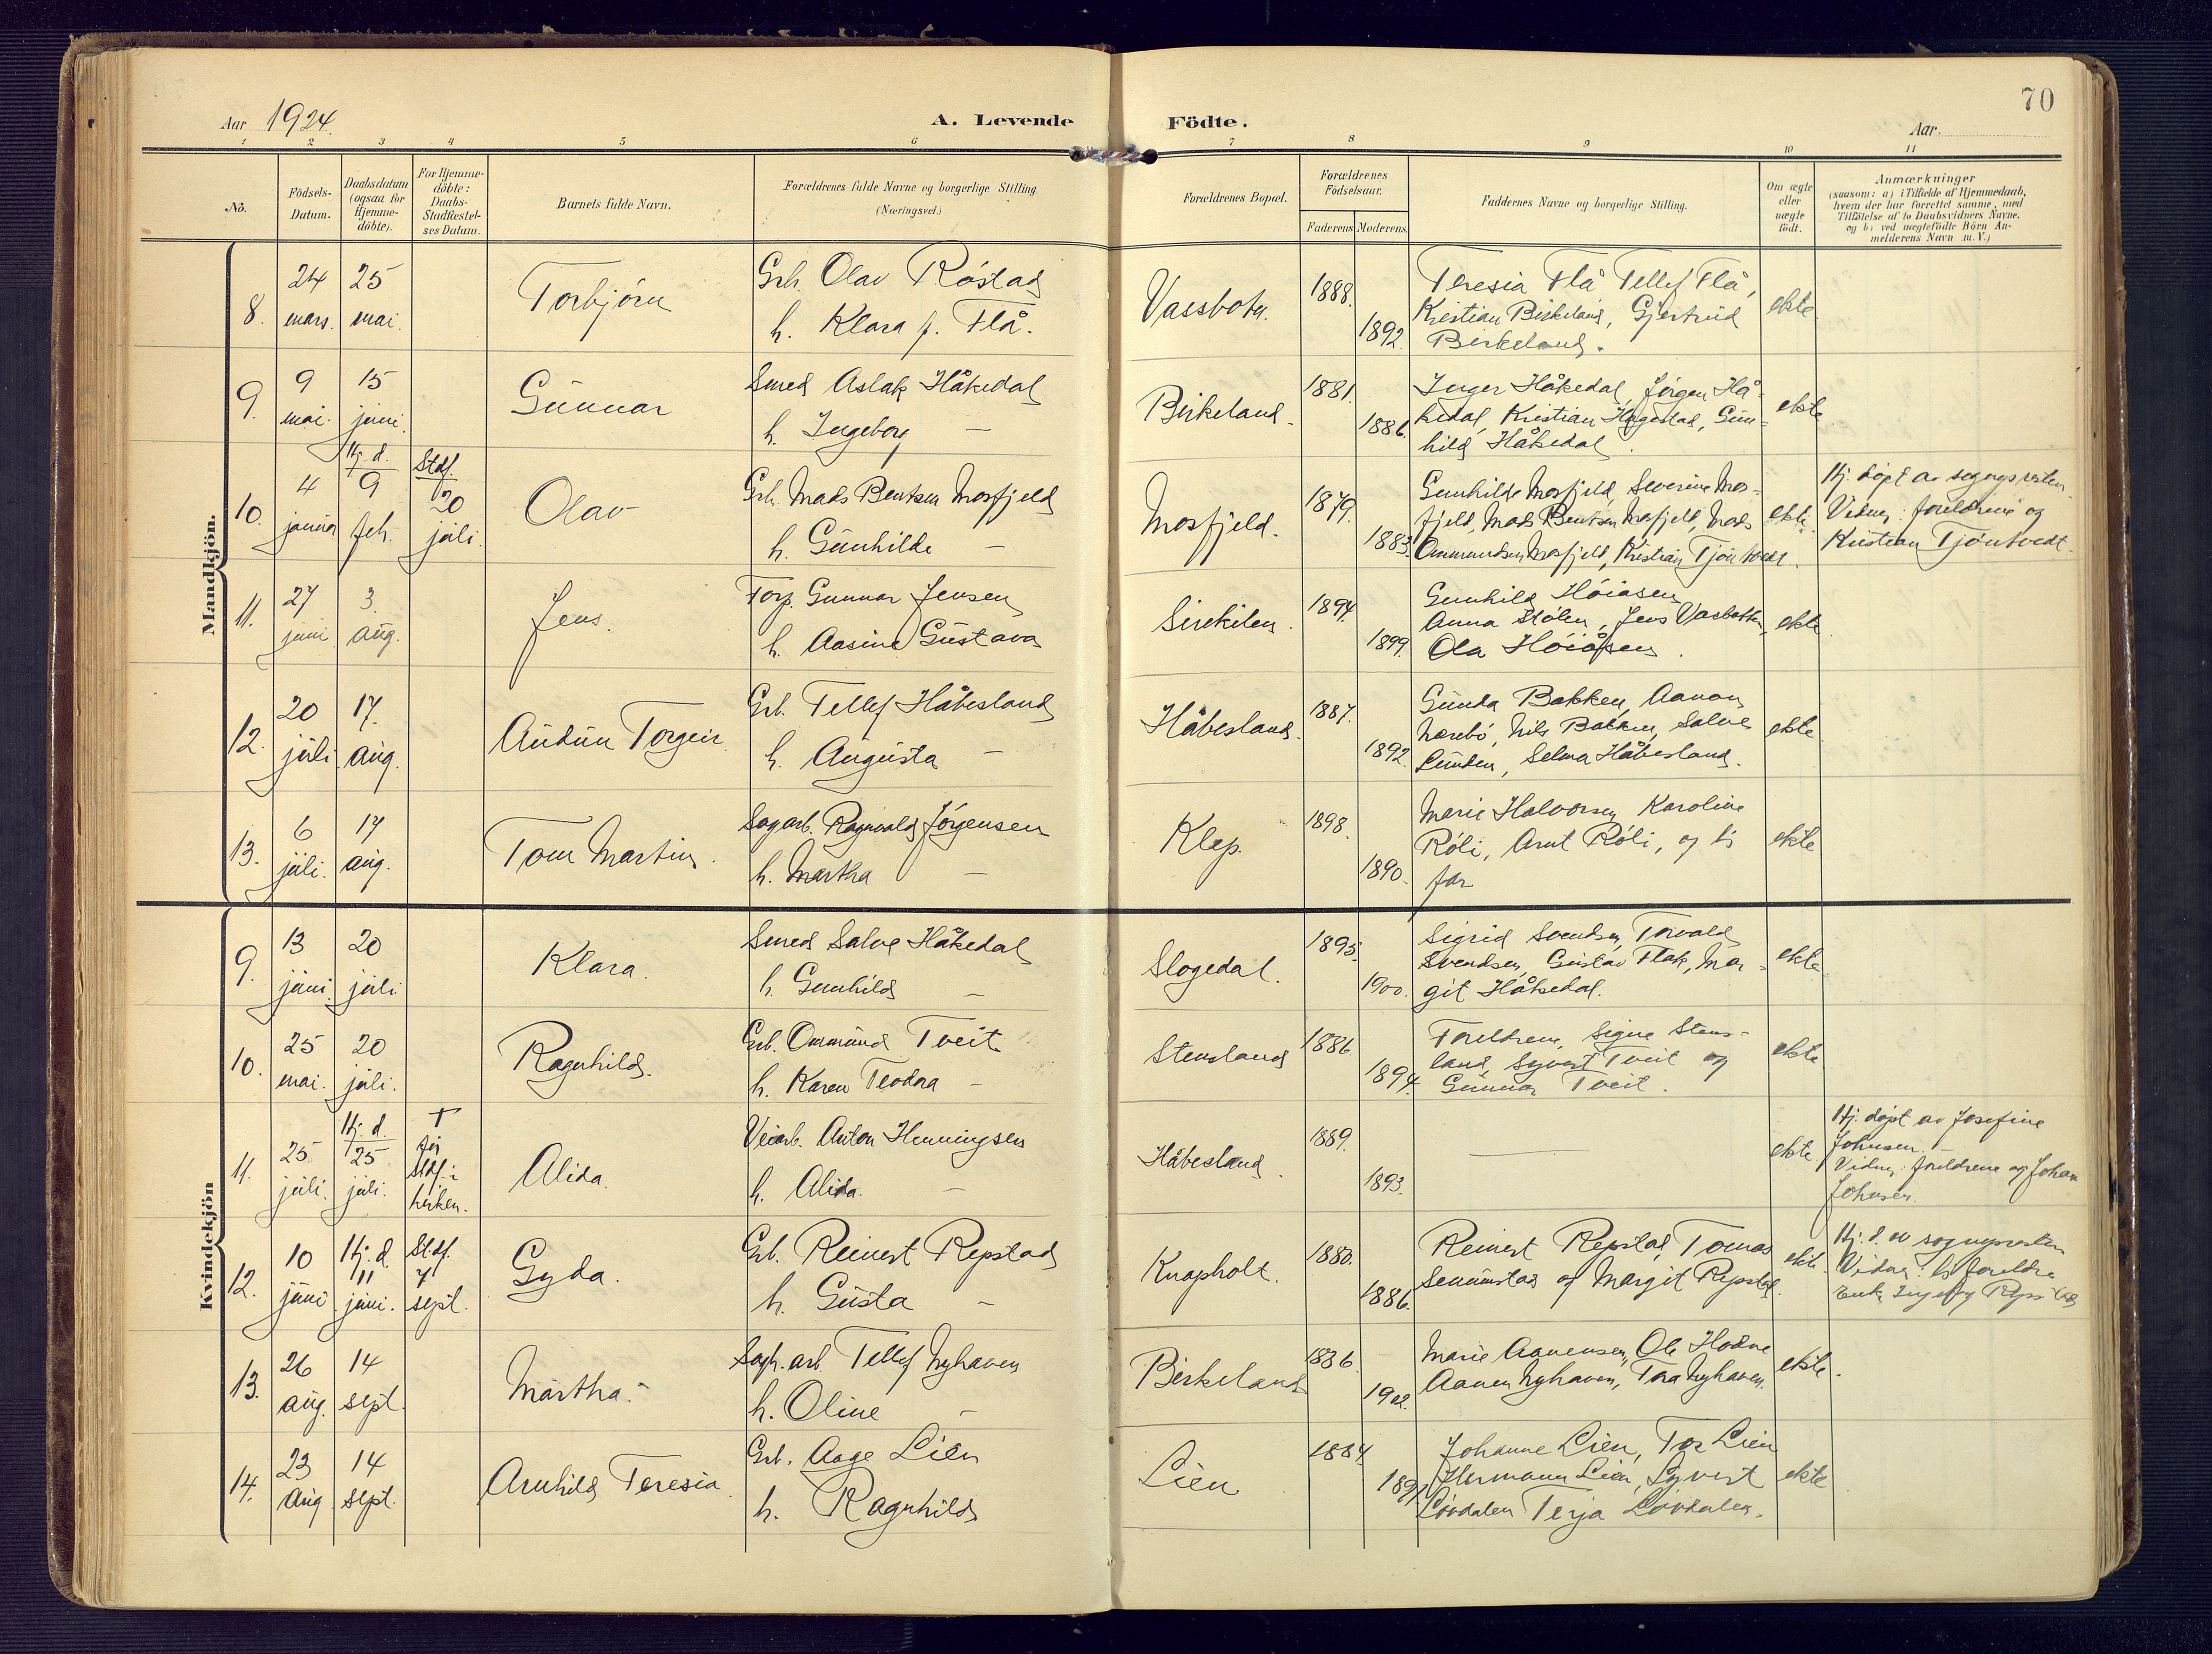 70
Aar 1924.
A. Levende Födte.
Aar
1 2 3 4 5 6 7 8 9 10 11
No.
Födsels-
Datum.
Daabsdatum
(ogsaa for
Hjemme-
döbte).
For Hjemme-
döbte:
Daabs-
Stadfæstel-
ses Datum.
Barnets fulde Navn.
Forældrenes fulde Navne og borgerlige Stilling.
(Næringsvei.)
Forældrenes Bopæl.
Forældrenes
Födselsaar.
Faderens Moderens.
Faddernes Navne og borgerlige Stilling.
Om ægte
eller
uægte
født.
Anmærkninger
(saasom: a) i Tilfælde af Hjemmedaab,
hvem der har forrettet samme, med
Tilföielse af to Daabsvidners Navne,
og b) ved uægtefödte Börn An-
melderens Navn m. V.)
Mandkjön.
8.
24
mars.
25
mai.
Torbjörn
Grb. Olav Röstad
h. Klara f. Flå.
Vassbotn.
1888.
1892.
Teresia Flå Tellef Flå,
Kristian Birkeland, Gjertrud
Birkeland.
ekte
9.
9
mai.
15
juni.
Gunnar
Smed Aslak Håkedal
h. Ingeborg —
Birkeland.
1881.
1886.
Inger Håkedal, Jörgen Hå-
kedal, Kristian Hagestad, Gun-
hild Håkedal.
ekte
10.
4
januar
Hj. d.
9
feb.
Stdf.
20
juli.
Olav
Grb. Mads Bentsen Mosfjeld
h. Gunhilde —
Mosfjeld.
1879.
1883.
Gunhilde Mosfjeld, Severine Mos-
fjeld, Mads Bentsen Mosfjeld, Mads
Ommundsen Mosfjeld, Kristian Tjöntvedt.
ekte.
Hj. döpt av sognepresten.
Vidner: foreldrene og
Kristian Tjöntvedt.
11.
27
juni
3.
aug.
Jens.
Torp. Gunnar Jensen
h. Aasine Gustava
Sirekilen.
1894.
1899.
Gunhild Höiåsen
Anna Stölen, Jens Vasbotn,
Ola Höiåsen.
ekte
12.
20
juli
17.
aug.
Audun Torgeir
Grb. Tellef Håbesland
h. Augusta —
Håbesland.
1887.
1892.
Gunda Bakken, Aanon
Nerebö, Nils Bakken, Salve
Lunden, Selma Håbesland.
ekte
13.
6
juli.
17
aug.
Tom Martin.
Sagarb. Ragnvald Jörgensen
h. Martha —
Klep.
1898.
1890.
Marie Halvorsen, Karoline
Röli, Arnt Röli, og bs
far
ekte
Kvindekjön
9.
13
juni.
20
juli
Klara.
Smed Salve Håkedal
h. Gunhild —
Slogedal.
1895.
1900.
Sigrid Svendsen, Torvald
Svendsen, Gustav Flak, Mar-
git Håkedal.
ekte
10.
25
mai.
20
juli.
Ragnhild.
Grb. Ommund Tveit
h. Karen Teodora —
Stensland
1886
1894.
Foreldrene, Signe Stens-
land, Syvert Tveit og
Gunnar Tveit.
ekte
11.
25
juli.
Hj. d.
25
juli.
†
før
Stdf. i
kirken.
Alida.
Veiarb. Anton Henningsen
h. Alida. —
Håbesland.
1889.
1893.
—
ekte
Hj. döpt av Josefine
Johnsen. —
Vidner: foreldrene og Johan
Johnsen.
12.
10
juni
Hj. d.
11
juni.
Stdf.
7
sept.
Gyda.
Grb. Reinert Repstad
h. Gusta —
Knapholt.
1880.
1886.
Reinert Repstad, Tomas
Senumstad og Margit Repstad.
ekte.
Hj. d. av sognepresten
Vidner: bs foreldre
Enke Ingeborg Repstad
13.
26
aug.
14
sept.
Martha.
Sagb. arb. Tellef Nyhaven
h. Oline —
Birkeland
1886.
1902.
Marie Aanensen, Ole Hodne
Aanen Nyhaven, Tora Nyhaven.
ekte.
14.
23
aug
14
sept.
Arnhild Teresia.
Grb. Aage Lien
h. Ragnhild
Lien
1884.
Johanne Lien, Tor Lien
Hermann Lien, Syvert
Lövdalen Terja Lövdalen.
ekte